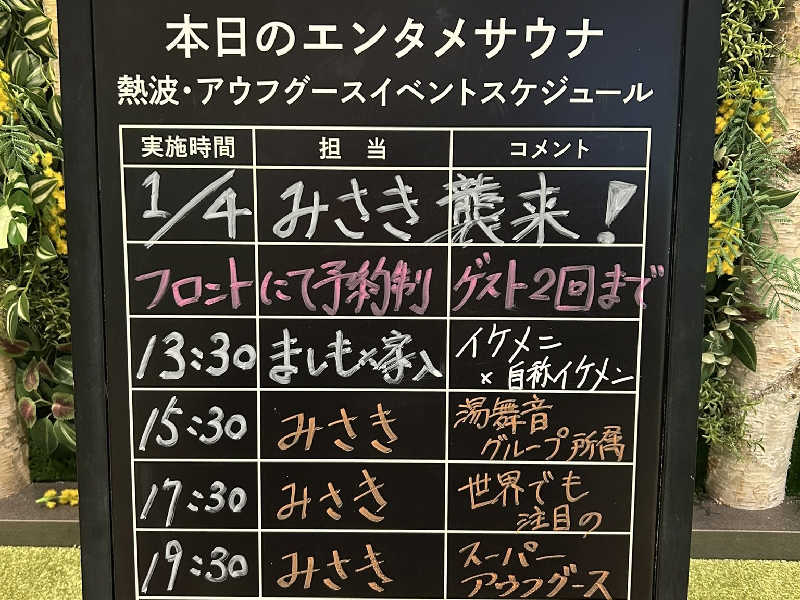 本日のエンタメサウナ
熱波・アウフグースイベントスケジュール
実施時間 担当 コメント
1/4 みさき 襲来!
フロントにて予約制 ゲスト2回まで
13:30 ましも×家入 イケメン
× 自称イケメン
15:30 みさき 湯舞音
グループ所属
17:30 みさき 世界でも
注目の
19:30 みさき スーパー
アウフグース